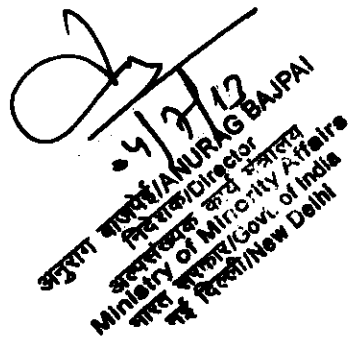 04/7/17
अनुराग बाजपेई/ANURAG BAJPAI
निदेशक/Director
अल्पसंख्यक कार्य मंत्रालय
Ministry of Minority Affairs
भारत सरकार/Govt. of India
नई दिल्ली/New Delhi